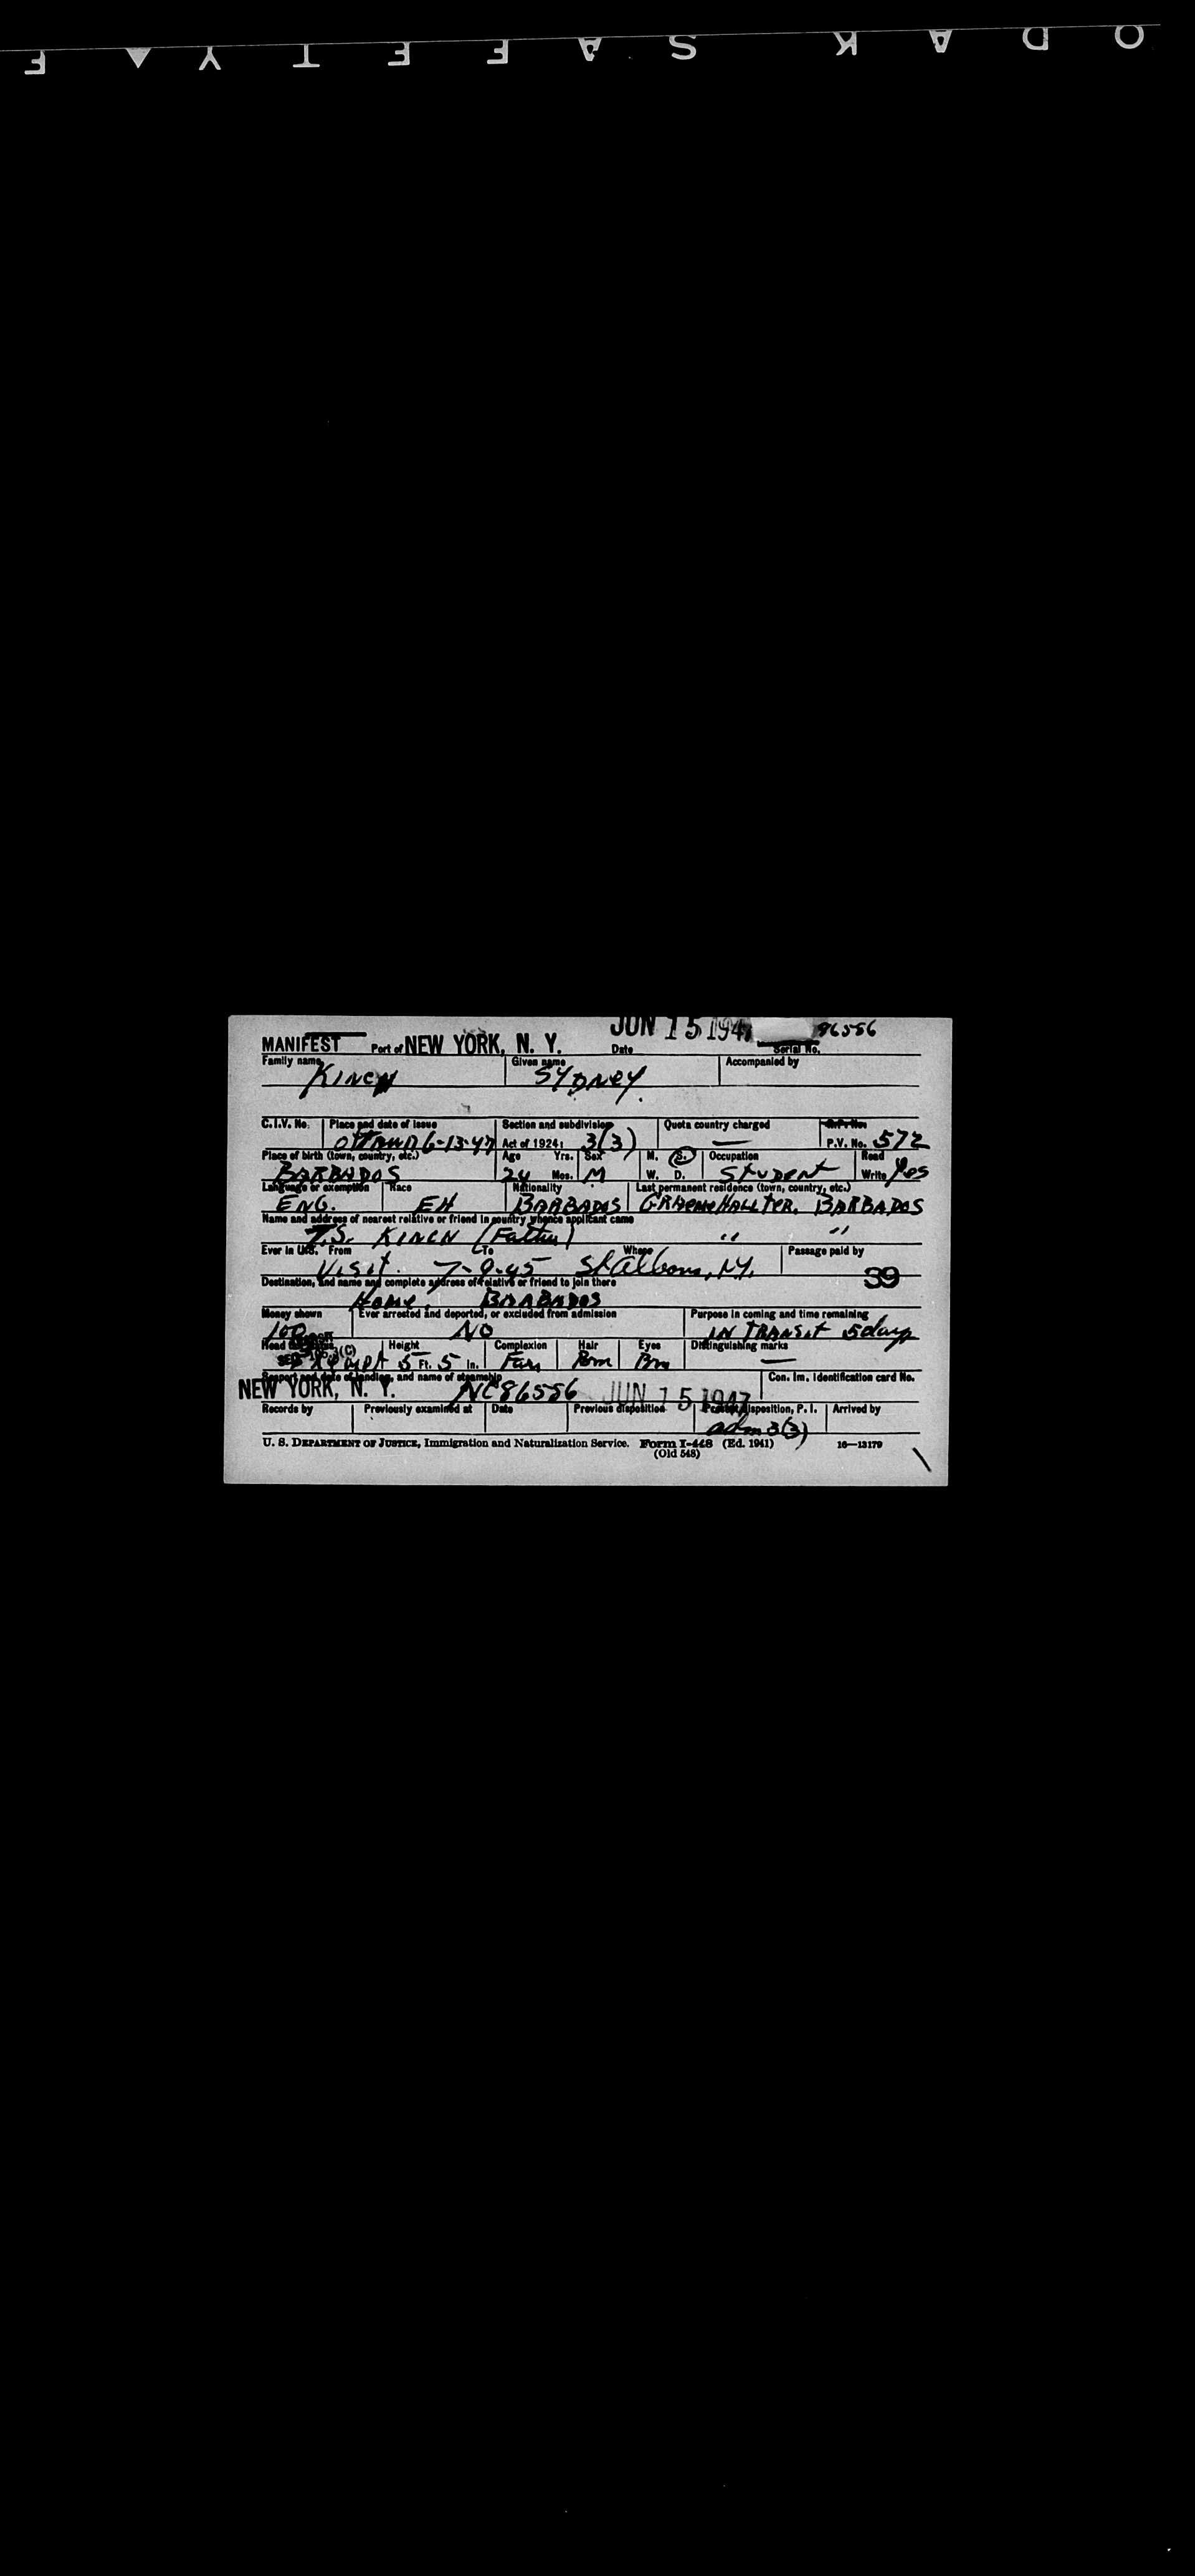 F ▲ Y T E F A S K A D O
JUN 15 194 96556
MANIFEST Port of NEW YORK, N. Y. Date Serial No.
Family name Given name Accompanied by
KINCH SYDNEY
C.I.V. No. Place and date of issue Section and subdivision Quota country charged
OTTAWA 6-13-47 Act of 1924: 3(3) — P.V. No. 572
Place of birth (town, country, etc.) Age Yrs. Sex M. S. Occupation Read
BARBADOS 24 Mos. M W. D. STUDENT Write Yes
Language or exemption Race Nationality Last permanent residence (town, country, etc.)
ENG. EH BARBADOS GRAEME HALL TER. BARBADOS
Name and address of nearest relative or friend in country whence applicant came
T.S. KINCH (Father) " "
Ever in U.S. From To Where Passage paid by
Visit. 7-9-45 St Albans, N.Y. 39
Destination, and name and complete address of relative or friend to join there
Home, BARBADOS
Money shown Ever arrested and deported, or excluded from admission Purpose in coming and time remaining
100 NO IN TRANSIT 5 days
Head Height Complexion Hair Eyes Distinguishing marks
Exempt 5 Ft. 5 In. Fair Brn Brn —
Seaport and date of landing, and name of steamship Con. Im. Identification card No.
NEW YORK, N. Y. NC86556 JUN 15 1947
Records by Previously examined at Date Previous disposition Present disposition, P. I. Arrived by
adm 3(3)
U. S. DEPARTMENT OF JUSTICE, Immigration and Naturalization Service. Form I-448 (Ed. 1941) 16—13179
(Old 548)